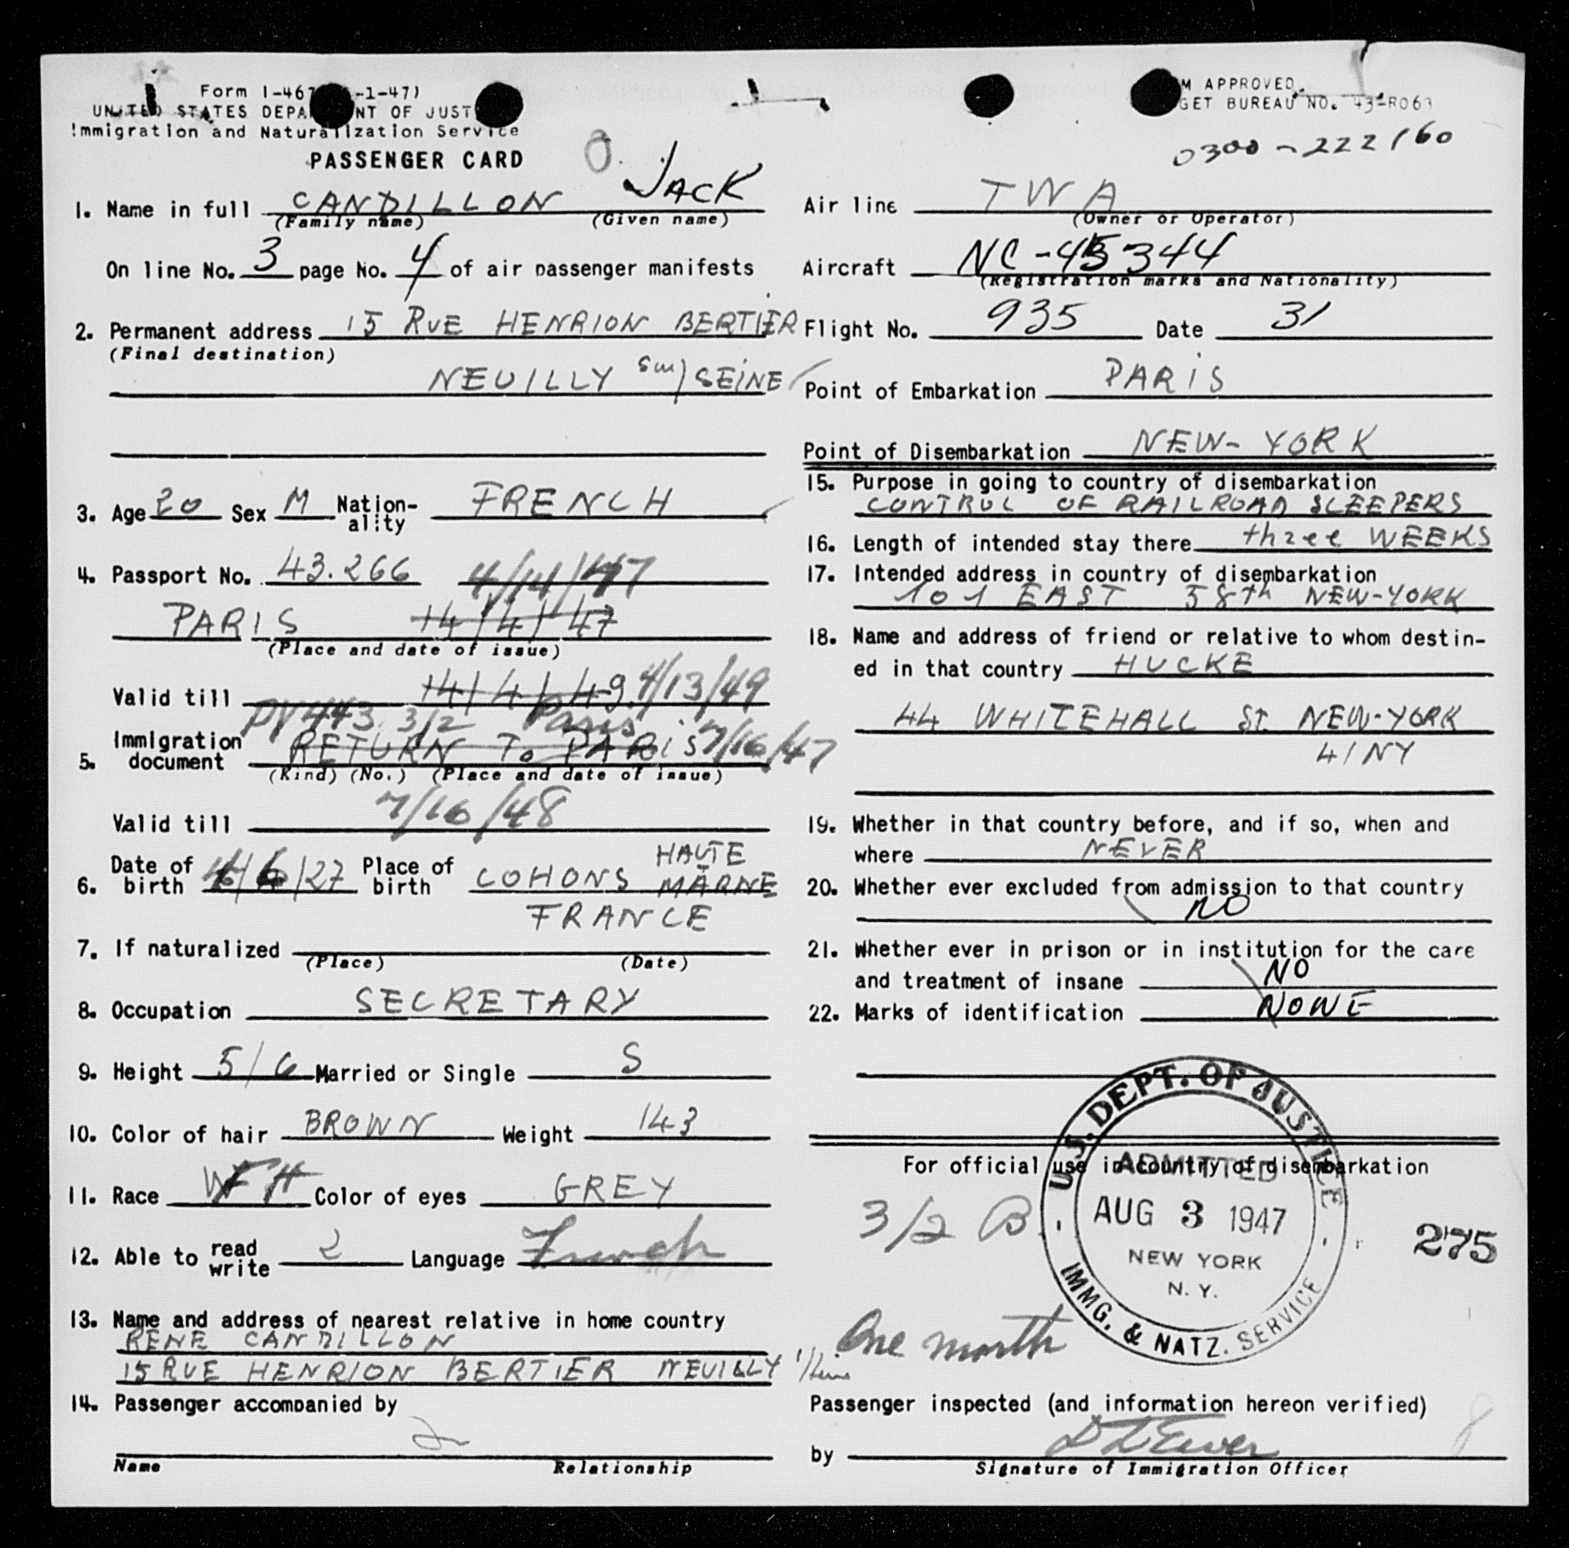 Form I-467 -1-47)
UNITED STATES DEPA NT OF JUST
Immigration and Naturalization Service
PASSENGER CARD
M APPROVED.
GET BUREAU NO. 43-R063
0300-222160
1. Name in full CANDILLON JACK
(Family name) (Given name)
On line No. 3 page No. 4 of air passenger manifests
2. Permanent address 15 RUE HENRION BERTIER
(Final destination)
NEUILLY sur/SEINE
3. Age 20 Sex M Nation-ality FRENCH
4. Passport No. 43.266 4/14/47
PARIS 14/4/47
(Place and date of issue)
Valid till 14/4/49. 4/13/49
PV 443 3/2 Paris
5. Immigration document RETURN To PARIS 7/16/47
(Kind) (No.) (Place and date of issue)
Valid till 7/16/48
6. Date of birth /27 Place of birth COHONS HAUTE MARNE
FRANCE
7. If naturalized
(Place) (Date)
8. Occupation SECRETARY
9. Height 5/6 Married or Single S
10. Color of hair BROWN Weight 143
11. Race Color of eyes GREY
12. Able to read write 2 Language French
13. Name and address of nearest relative in home country
RENE CANDILLON
15 RUE HENRION BERTIER NEUILLY
14. Passenger accompanied by
Name Relationship
Air line TWA
(Owner or Operator)
Aircraft NC-45344
(Registration marks and Nationality)
Flight No. 935 Date 31
Point of Embarkation PARIS
Point of Disembarkation NEW-YORK
15. Purpose in going to country of disembarkation
CONTROL OF RAILROAD SLEEPERS
16. Length of intended stay there three WEEKS
17. Intended address in country of disembarkation
101 EAST 38th NEW-YORK
18. Name and address of friend or relative to whom destin-
ed in that country HUCKE
44 WHITEHALL St. NEW-YORK
4/NY
19. Whether in that country before, and if so, when and
where NEVER
20. Whether ever excluded from admission to that country
NO
21. Whether ever in prison or in institution for the care
and treatment of insane NO
22. Marks of identification NONE
For official use in country of disembarkation
3/2 B
U.S. DEPT. OF JUSTICE
ADMITTED
AUG 3 1947
NEW YORK
N. Y.
IMMG. & NATZ. SERVICE
275
One month
Passenger inspected (and information hereon verified)
by
Signature of Immigration Officer